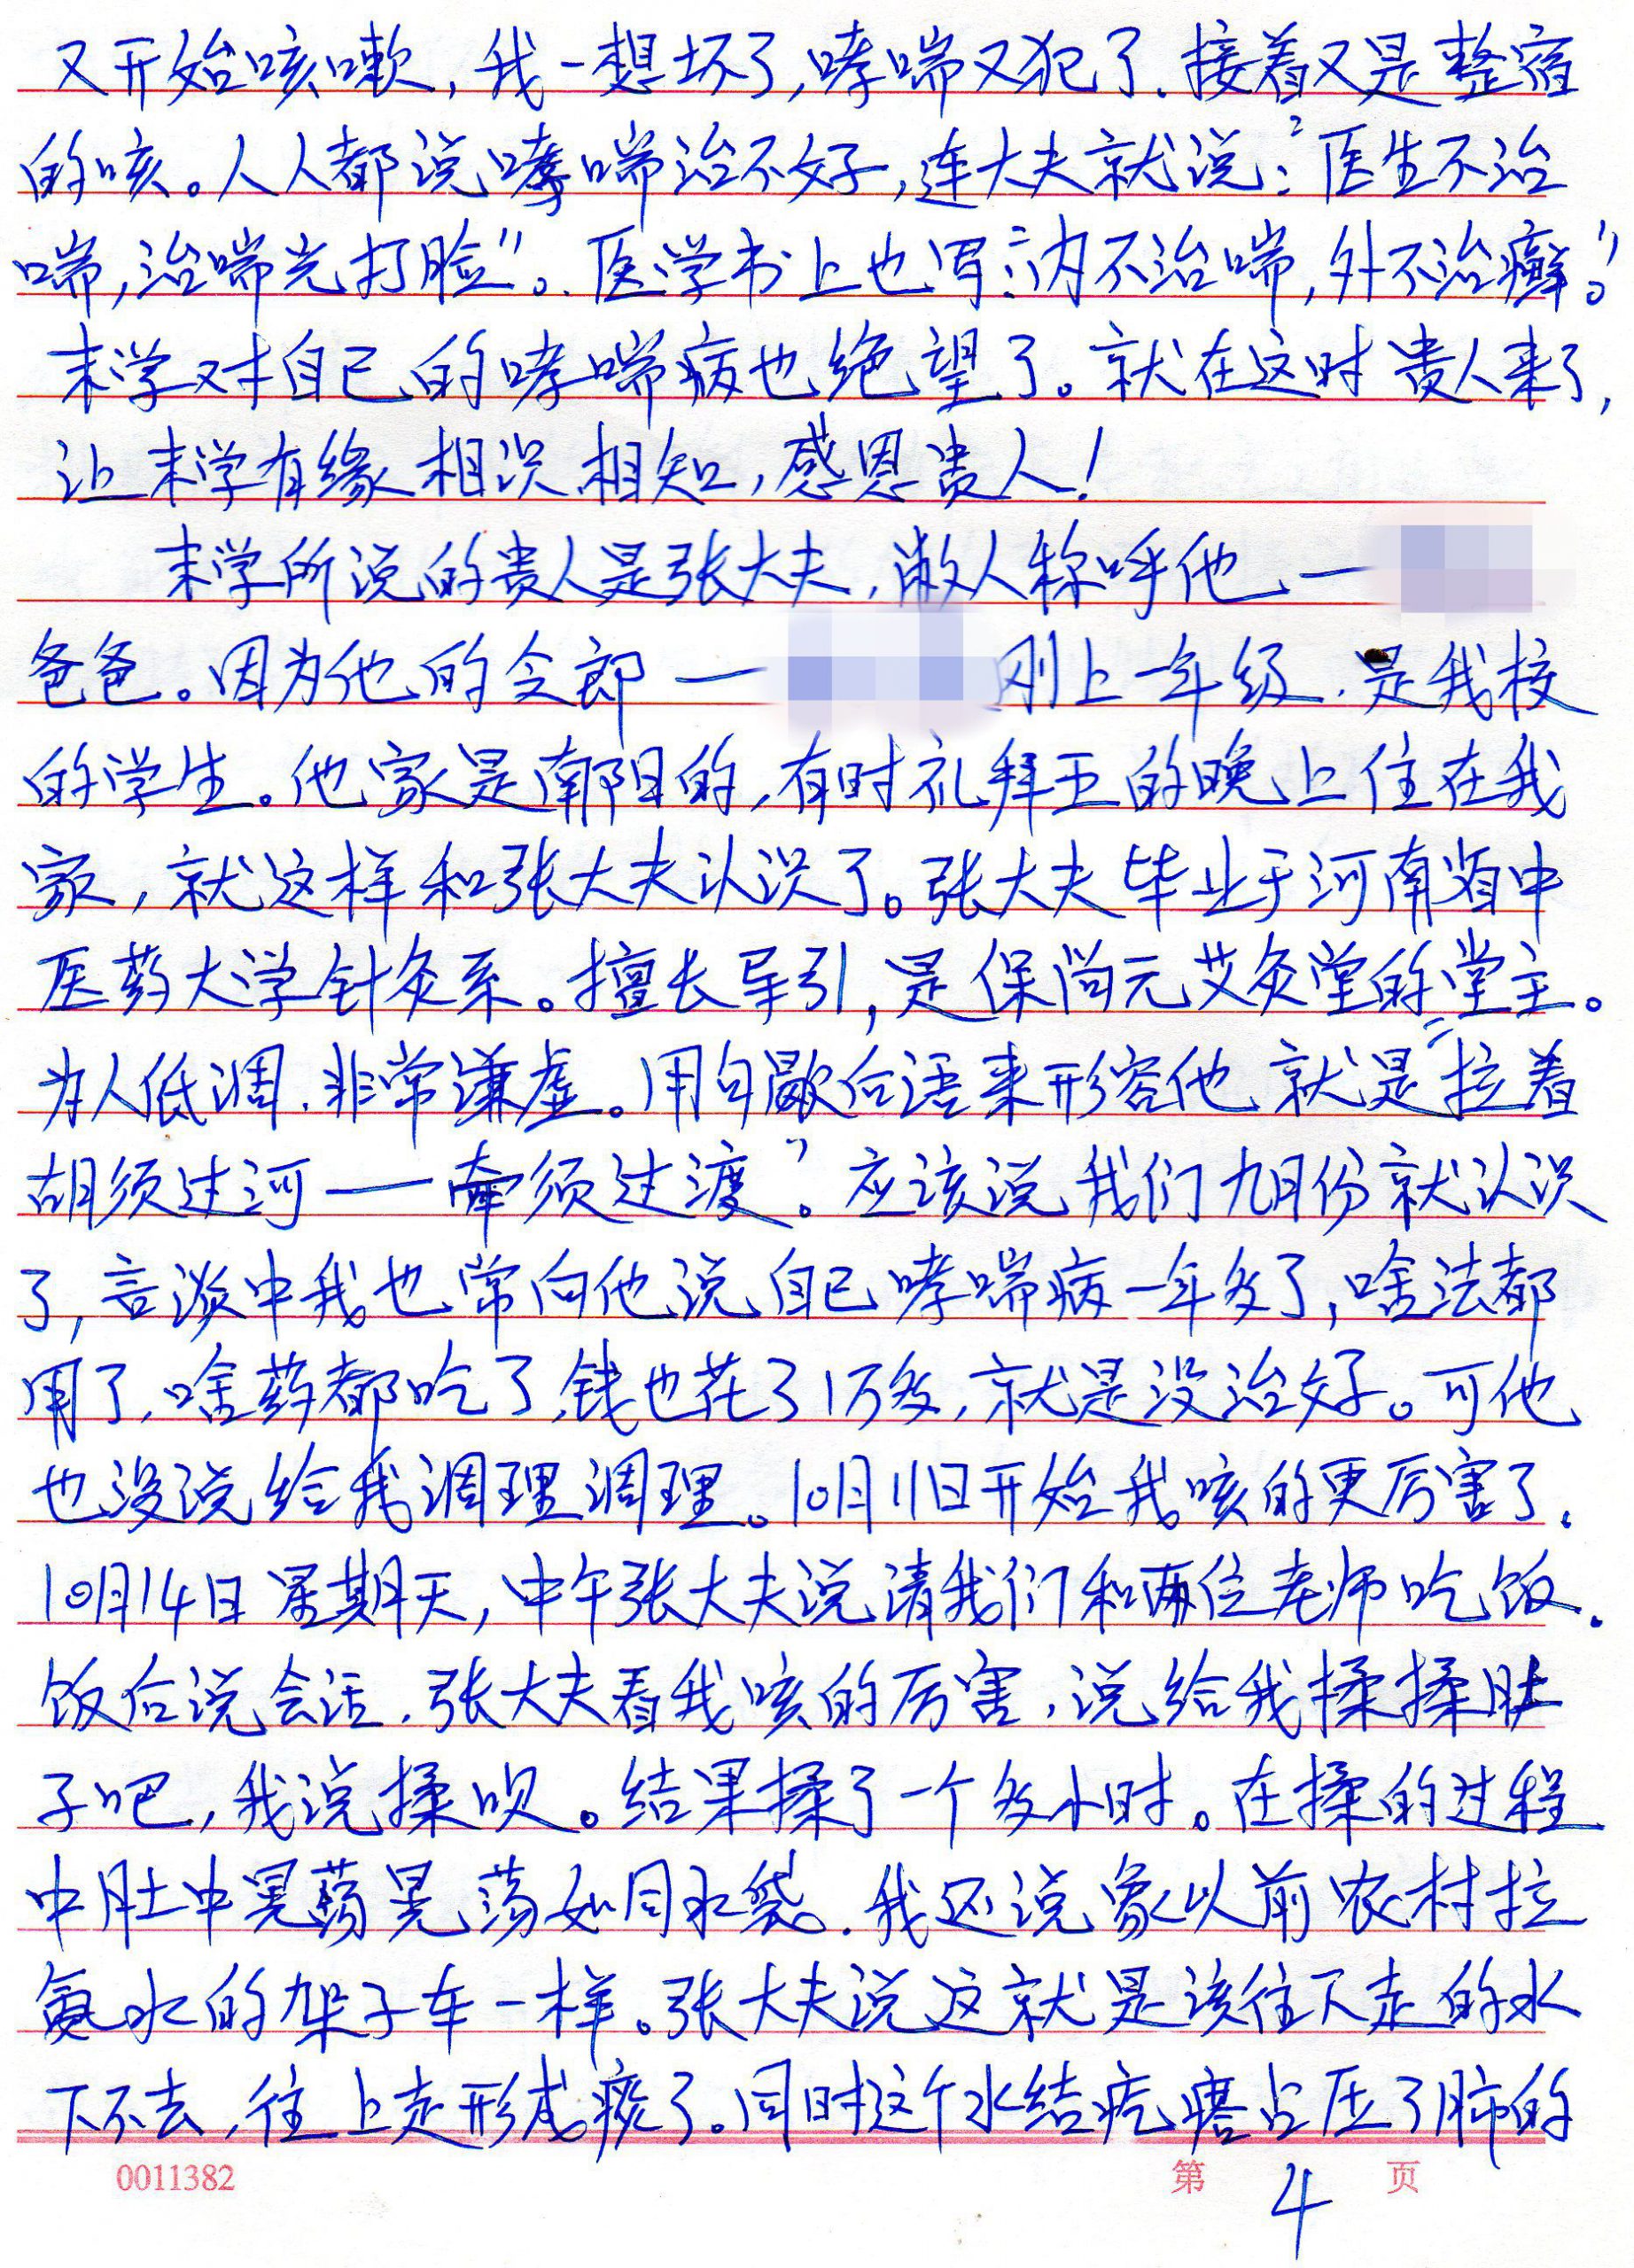 又开始咳嗽,我一想坏了,哮喘又犯了.接着又是整宿
的咳。人人都说哮喘治不好,连大夫就说:"医生不治
喘,治喘光打脸"。医学书上也写:"内不治喘,外不治癣。"
末学对自己的哮喘病也绝望了。就在这时贵人来了,
让末学有缘相识相知,感恩贵人!
末学所说的贵人是张大夫,敝人称呼他—
爸爸。因为他的令郎—刚上一年级.是我校
的学生。他家是南阳的,有时礼拜五的晚上住在我
家,就这样和张大夫认识了。张大夫毕业于河南省中
医药大学针灸系。擅长导引,是保尚元艾灸堂的堂主。
为人低调.非常谦虚。用句歇后语来形容他就是"拉着
胡须过河——牵须过渡"。应该说我们九月份就认识
了,言谈中我也常向他说自己哮喘病一年多了,啥法都
用了,啥药都吃了,钱也花了1万多,就是没治好。可他
也没说给我调理调理。10月11日开始我咳的更厉害了.
10月14日星期天,中午张大夫说请我们和两位老师吃饭.
饭后说会话.张大夫看我咳的厉害,说给我揉揉肚
子吧,我说揉呗。结果揉了一个多小时。在揉的过程
中肚中晃荡晃荡如同水袋。我还说象以前农村拉
氨水的架子车一样。张大夫说这就是该往下走的水
下不去,往上走形成痰了。同时这个水结疙瘩占压了肺的
0011382 第 4 页